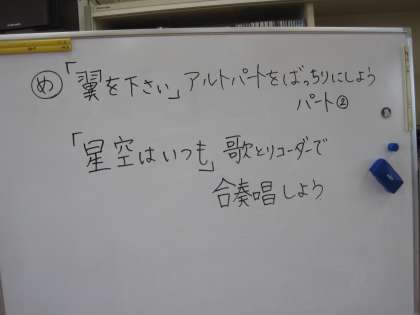 め「翼を下さい」アルトパートをばっちりにしよう
パート②
「星空はいつも」歌とリコーダーで
合奏唱しよう